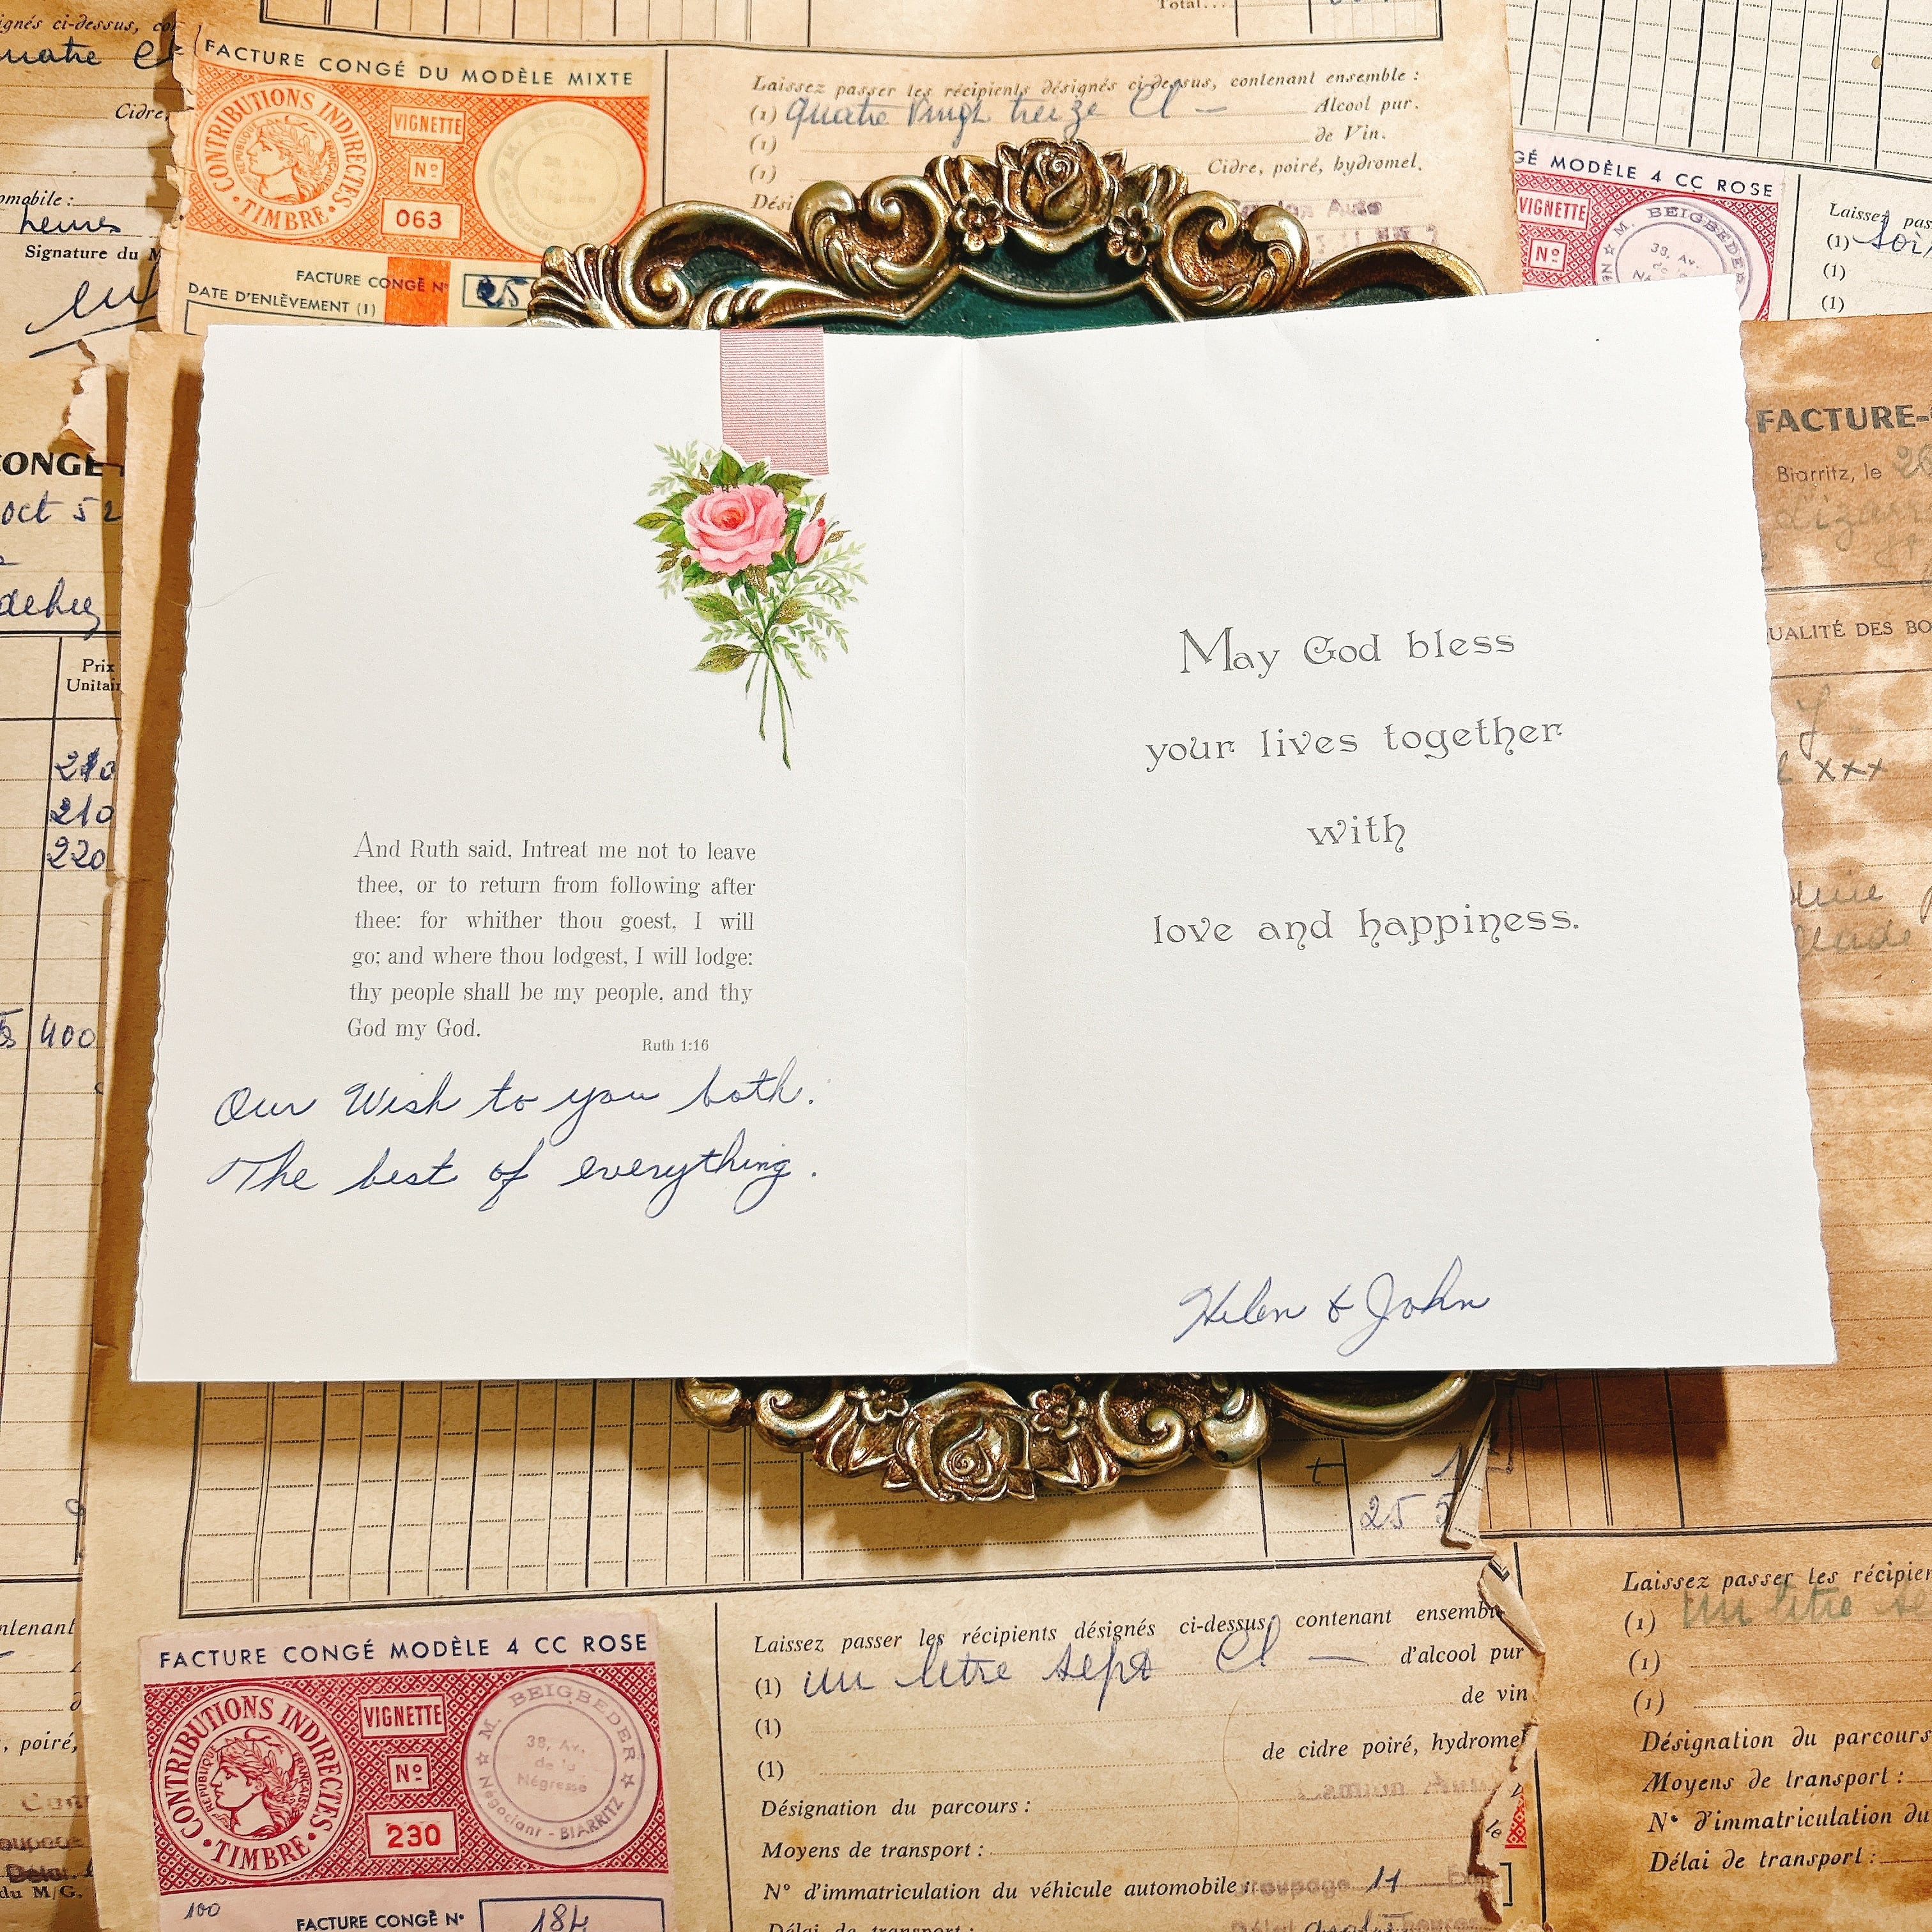 ignés ci-dessus,
Total...
FACTURE CONGÉ DU MODÈLE MIXTE
CONTRIBUTIONS INDIRECTES
RÉPUBLIQUE FRANÇAISE
TIMBRE
VIGNETTE
Nº
063
FACTURE CONGÉ Nº
25
DATE D'ENLÈVEMENT (1)
Cidre,
omobile :
heures
Signature du M
Laissez passer les récipients désignés ci-dessus, contenant ensemble :
(1) quatre vingt treize cl — Alcool pur.
(1) de Vin.
(1) Cidre, poiré, hydromel.
GÉ MODÈLE 4 CC ROSE
VIGNETTE
Nº
M. BEIGBEDER
38, Av.
Laissez pas
(1)
(1)
(1)
CONGÉ
oct 52
Prix
Unitair
210
210
220
400
FACTURE-
Biarritz, le 26
UALITÉ DES BO
xxx
And Ruth said, Intreat me not to leave
thee, or to return from following after
thee: for whither thou goest, I will
go; and where thou lodgest, I will lodge:
thy people shall be my people, and thy
God my God.
Ruth 1:16
Our Wish to you both.
The best of everything.
May God bless
your lives together
with
love and happiness.
Helen & John
25 5
FACTURE CONGÉ MODÈLE 4 CC ROSE
CONTRIBUTIONS INDIRECTES
RÉPUBLIQUE FRANÇAISE
TIMBRE
VIGNETTE
Nº
230
M. BEIGBEDER
38, Av.
de la
Négresse
Négociant - BIARRITZ
100
FACTURE CONGÉ Nº
184
Laissez passer les récipients désignés ci-dessus, contenant ensemble
(1) un litre sept cl — d'alcool pur
(1) de vin
(1) de cidre poiré, hydromel
Désignation du parcours :
Moyens de transport :
N° d'immatriculation du véhicule automobile :
Délai de transport :
, poiré,
du M/G.
Laissez passer les récipien
(1) un litre
(1)
(1)
Désignation du parcours
Moyens de transport :
N° d'immatriculation du
Délai de transport :